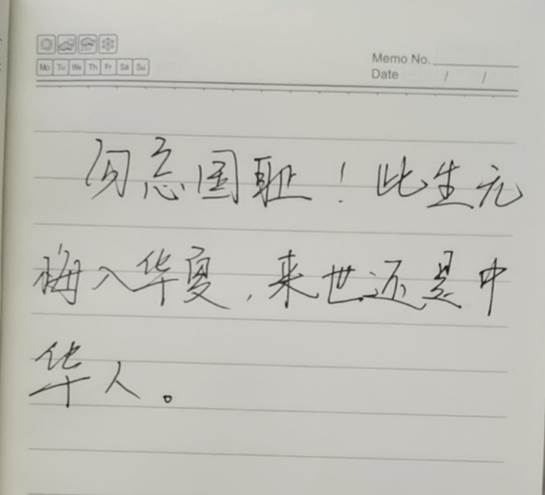 Mo Tu We Th Fr Sa Su
Memo No.
Date / /
勿忘国耻！此生无
悔入华夏，来世还是中
华人。